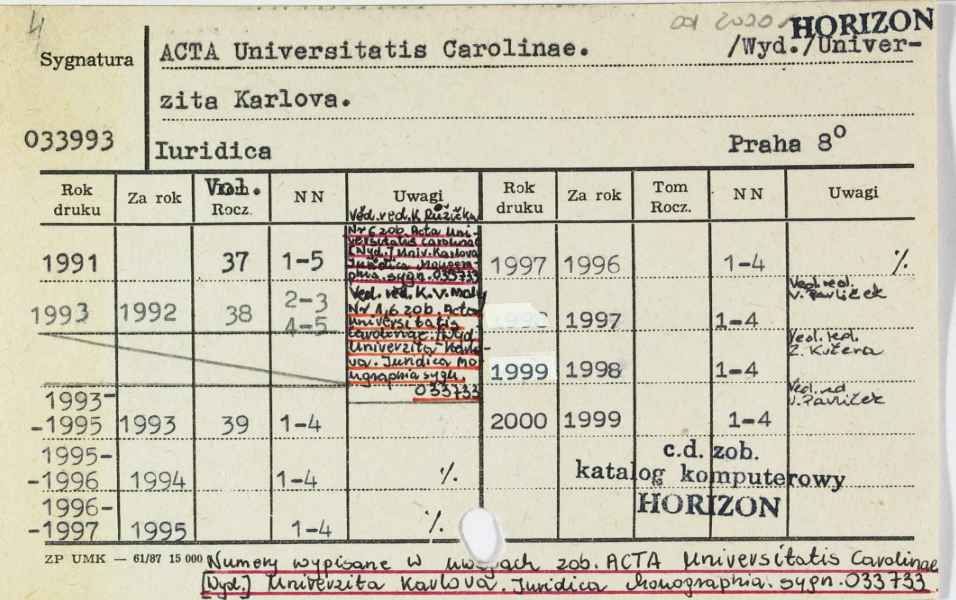 4
od 2020 HORIZON
Sygnatura
ACTA Universitatis Carolinae. /Wyd./Univer-
zita Karlova.
033993
Iuridica Praha 8°
Rok druku Za rok Vol. Rocz. N N Uwagi Rok druku Za rok Tom Rocz. N N Uwagi
1991 37 1-5
Věd.red.K.Růžička
Nr 6 zob. Acta Uni-
versitatis Carolinae
[Wyd.] Univ. Karlova
Juridica Monogra-
phia. sygn. 033733
1997 1996 1-4 ./.
1993 1992 38 2-3
4-5
Ved. red. K.V. Malý
Nr 1,6 zob. Acta
Universitatis
Carolinae. /Wyd./
Univerzita Karlo-
va. Juridica Mo-
nographia sygn.
033733
1998 1997 1-4 Ved. red.
V. Pavlíček
1999 1998 1-4 Ved. red.
Z. Kučera
1993-
-1995 1993 39 1-4
2000 1999 1-4 Ved. red
V. Pavlíček
1995-
-1996 1994 1-4 ./.
c.d. zob.
katalog komputerowy
HORIZON
1996-
-1997 1995 1-4 ./.
ZP UMK — 61/87 15 000
Numery wypisane w uwagach zob. ACTA Universitatis Carolinae
[Wyd.] Univerzita Karlova. Juridica Monographia. sygn. 033733.